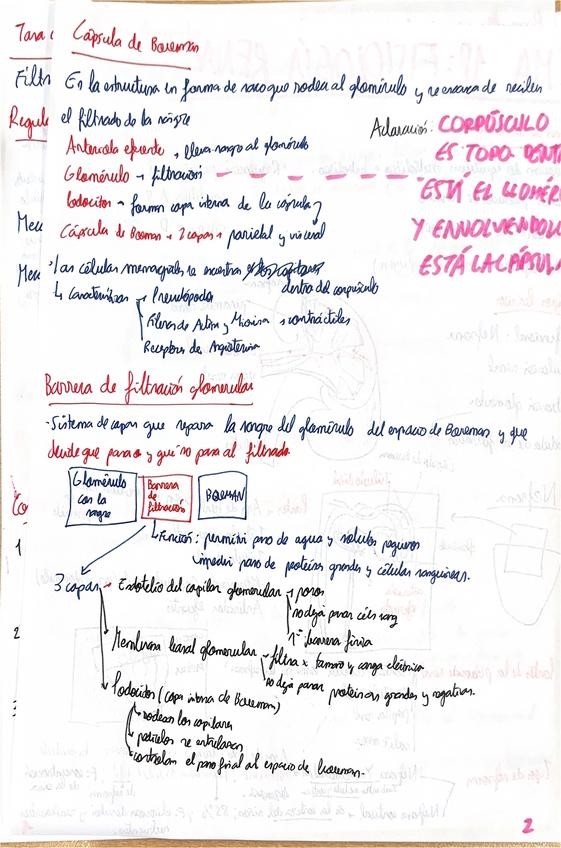 Cápsula de Bowman
Es la estructura en forma de saco que rodea al glomérulo y se encarga de recibir
el filtrado de la sangre
Aclaración: CORPÚSCULO
ES TODO. DENT
ESTÁ EL GLOMÉR
Y ENVOLVIENDOL
ESTÁ LA CÁPSUL
Arteriola eferente, lleva sangre al glomérulo
Glomérulo → filtración
Podocitos → forman capa interna de la cápsula
Cápsula de Bowman → 2 capas → parietal y visceral
Las células mesangiales se encuentran dentro del corpúsculo
Características → Pseudópodos
Fibras de Actina y Miosina → contráctiles
Receptores de Angiotensina
Barrera de filtración glomerular
- Sistema de capas que separa la sangre del glomérulo del espacio de Bowman, y que
decide que pasa o y qué no pasa al filtrado.
Glomérulo con la sangre
Barrera de filtración
BOWMAN
Función: permitir paso de agua y solutos pequeños
impedir paso de proteínas grandes y células sanguíneas.
3 capas → Endotelio del capilar glomerular → poros
no deja pasar céls sang
1ª barrera física
Membrana basal glomerular → filtra x tamaño y carga eléctrica
no deja pasar proteínas grandes y negativas.
Podocitos (capa interna de Bowman)
rodean los capilares
pedicelos se entrelazan
controlan el paso final al espacio de Bowman.
Filtr
Regula
Mec
Mec
Co
1
2
3
2